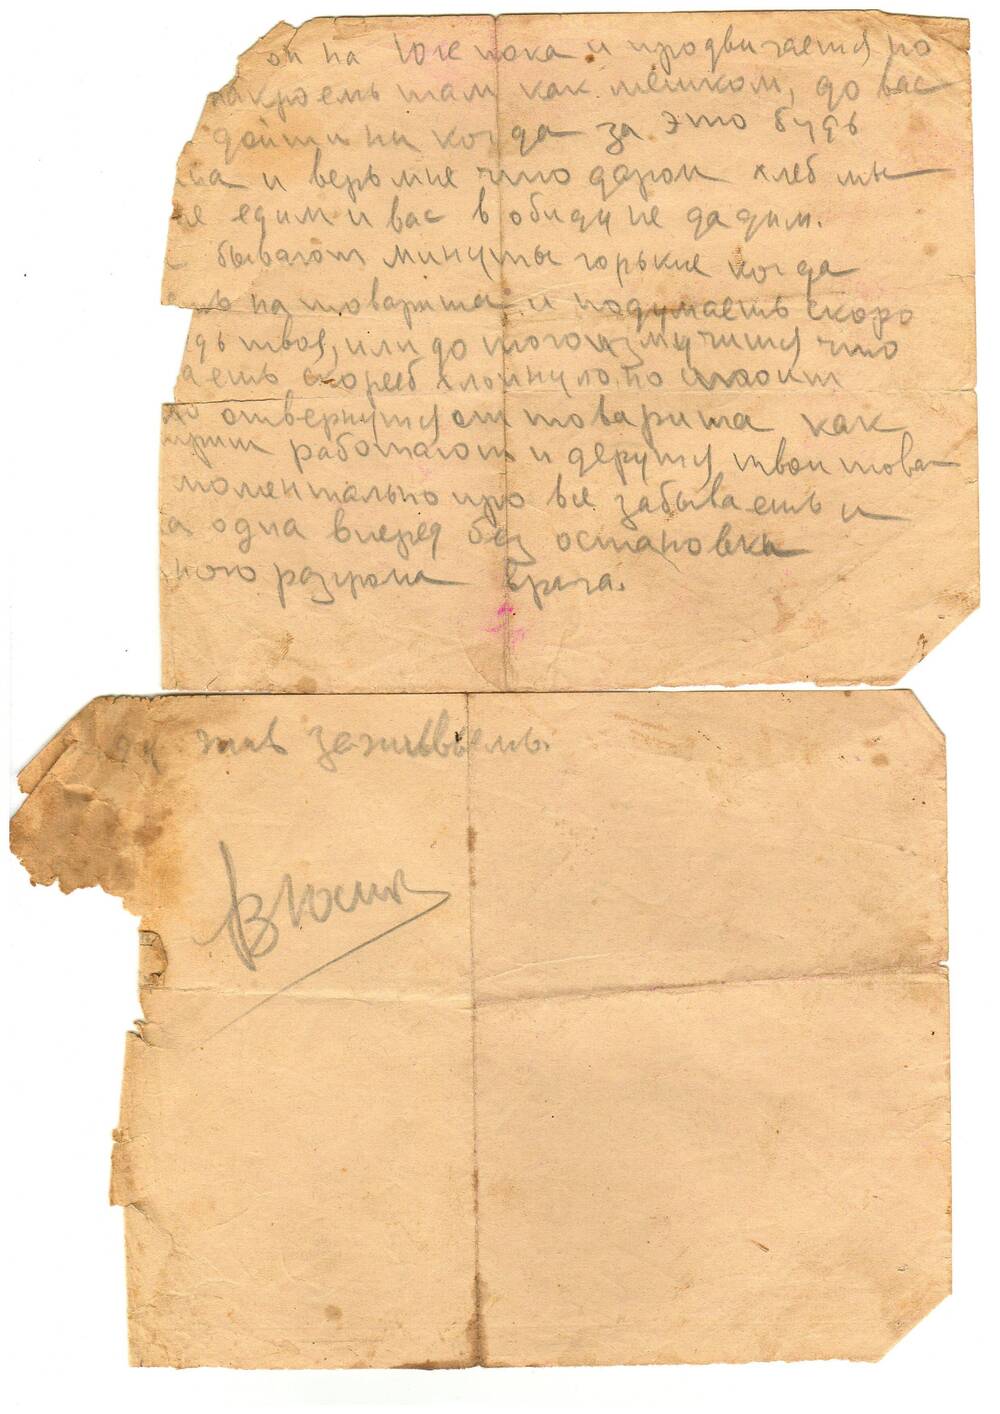 он на Юге пока и продвигается но
накроем там как мешком, до вас
дойти ни когда за это будь
и верь мне что даром хлеб мы
не едим и вас в обиду не дадим.
бывают минуты горькие когда
на товарища и подумаешь скоро
твоя, или до того измучишся что
скорей хлопнуло, но стоит
отвернутся от товарища как
работают и дерутся твои това
моментально про все забываешь и
одна вперед без остановки
ного разгрома врага.
жив заживьем.